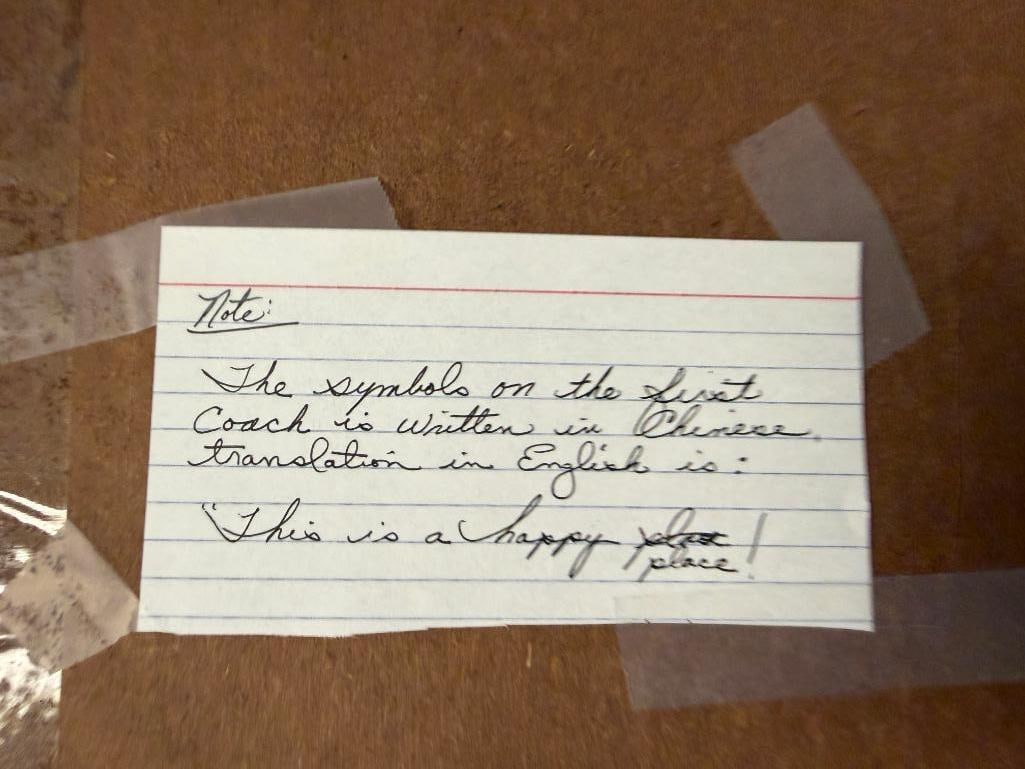 Note:
The symbols on the first
Coach is written in Chinese.
translation in English is:
"This is a happy
place!